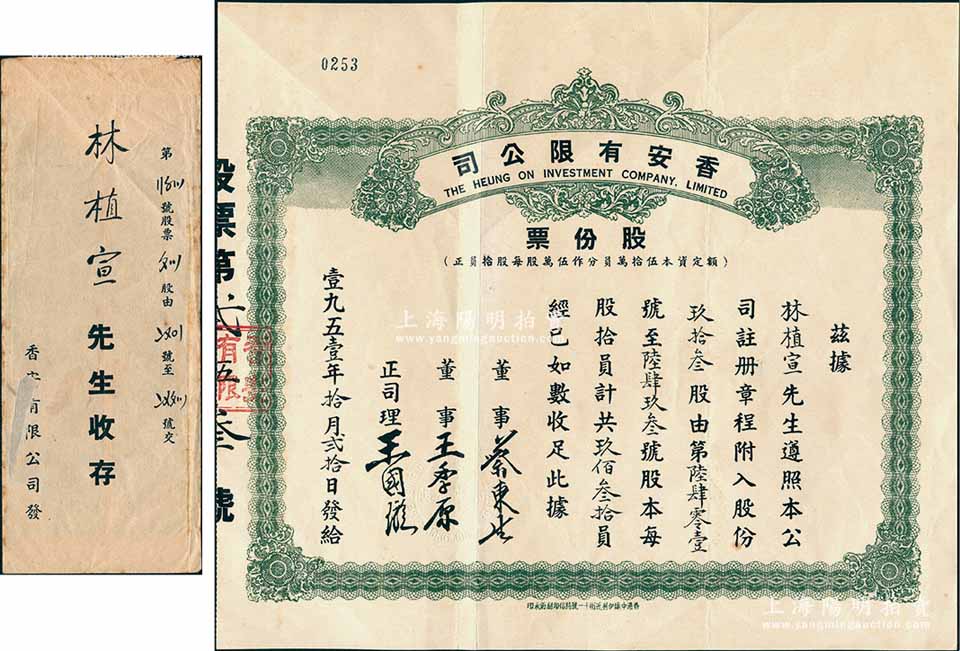 林植宣先生收存
號股票
股由
號至
號交
有限公司發
0253
香安有限公司
THE HEUNG ON INVESTMENT COMPANY, LIMITED
股份票
(額定資本伍拾萬員分作伍萬股每股拾員正)
茲據
林植宣先生遵照本公
司註册章程附入股份
玖拾叁股由第陸肆零壹
號至陸肆玖叁號股本每
股拾員計共玖佰叁拾員
經已如數收足此據
董事
董事王季原
正司理
壹九五壹年拾月弍拾日發給
股票第弍伍叁號
上海陽明拍賣
www.yangmingauction.com
上海陽明拍賣
www.yangmingauction.com